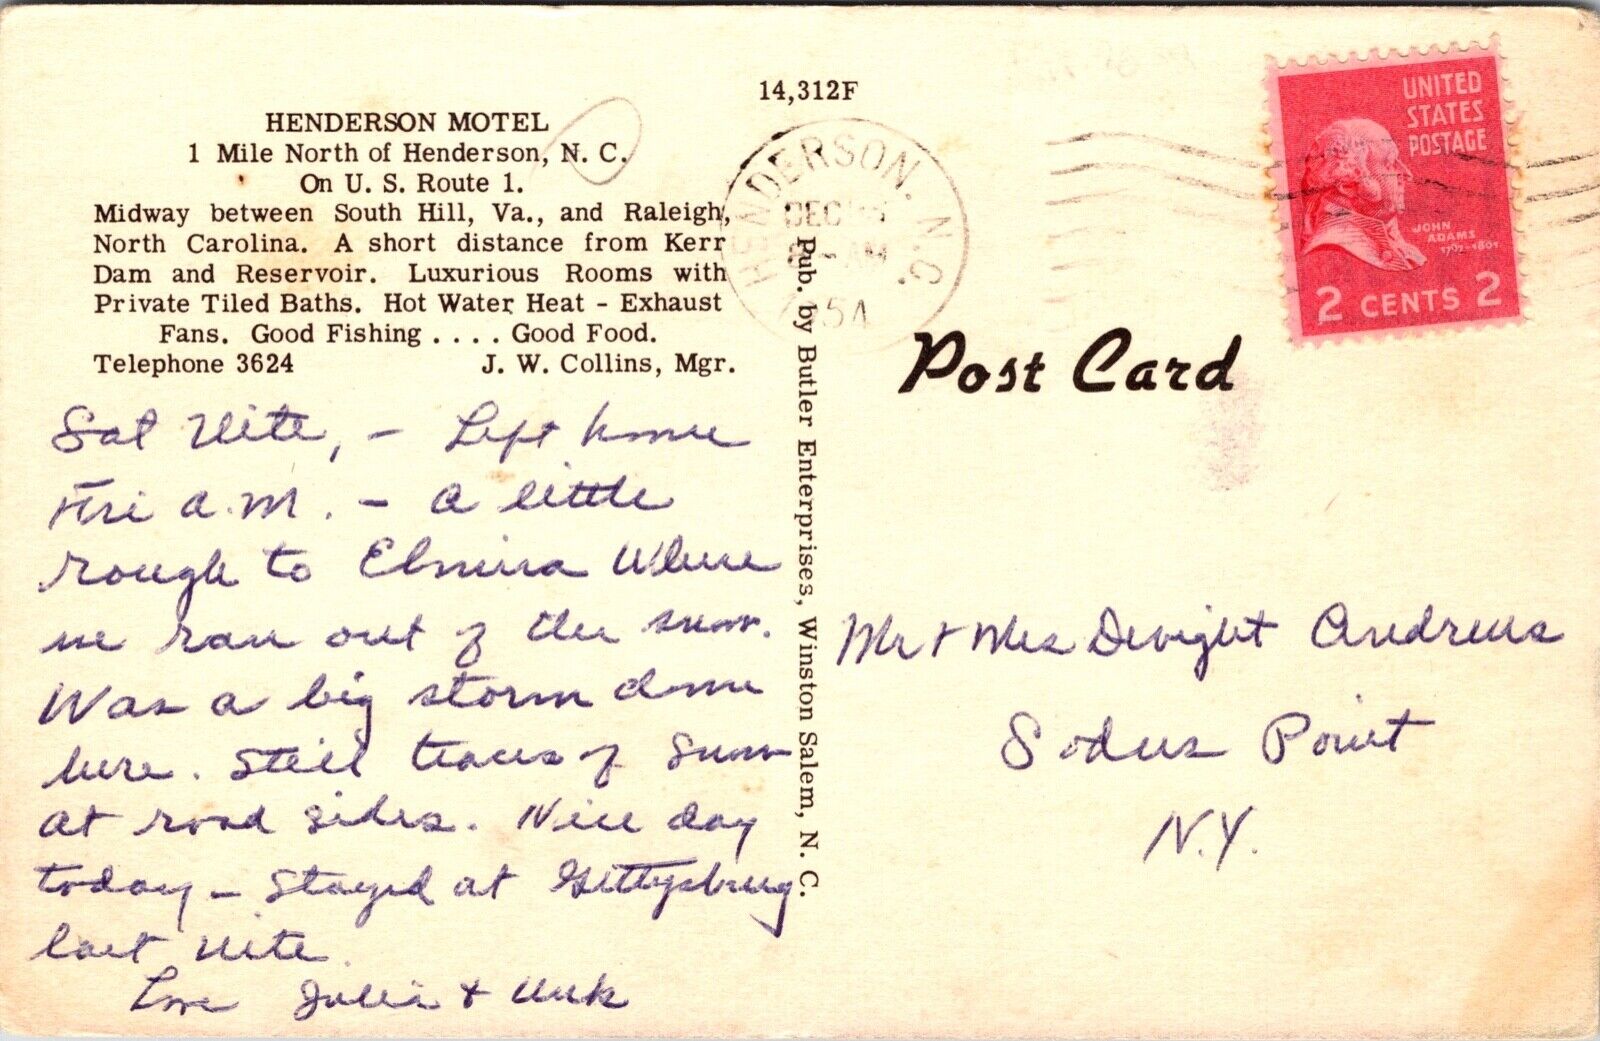 14,312F
HENDERSON MOTEL
1 Mile North of Henderson, N. C.
On U. S. Route 1.
Midway between South Hill, Va., and Raleigh,
North Carolina. A short distance from Kerr
Dam and Reservoir. Luxurious Rooms with
Private Tiled Baths. Hot Water Heat - Exhaust
Fans. Good Fishing . . . . Good Food.
Telephone 3624 J. W. Collins, Mgr.
Sat Nite, - Left home
Fri a.m. - a little
rough to Elmira where
we ran out of the snow.
Was a big storm down
here. Still traces of snow
at road sides. Nice day
today - stayed at Gettysburg
last nite.
Love Julia +
Pub. by Butler Enterprises, Winston Salem, N. C.
HENDERSON. N.C.
DEC
AM
1954
UNITED
STATES
POSTAGE
JOHN
ADAMS
1797-1801
2 CENTS 2
Post Card
Mr + Mrs Dwight Andrews
Sodus Point
N.Y.